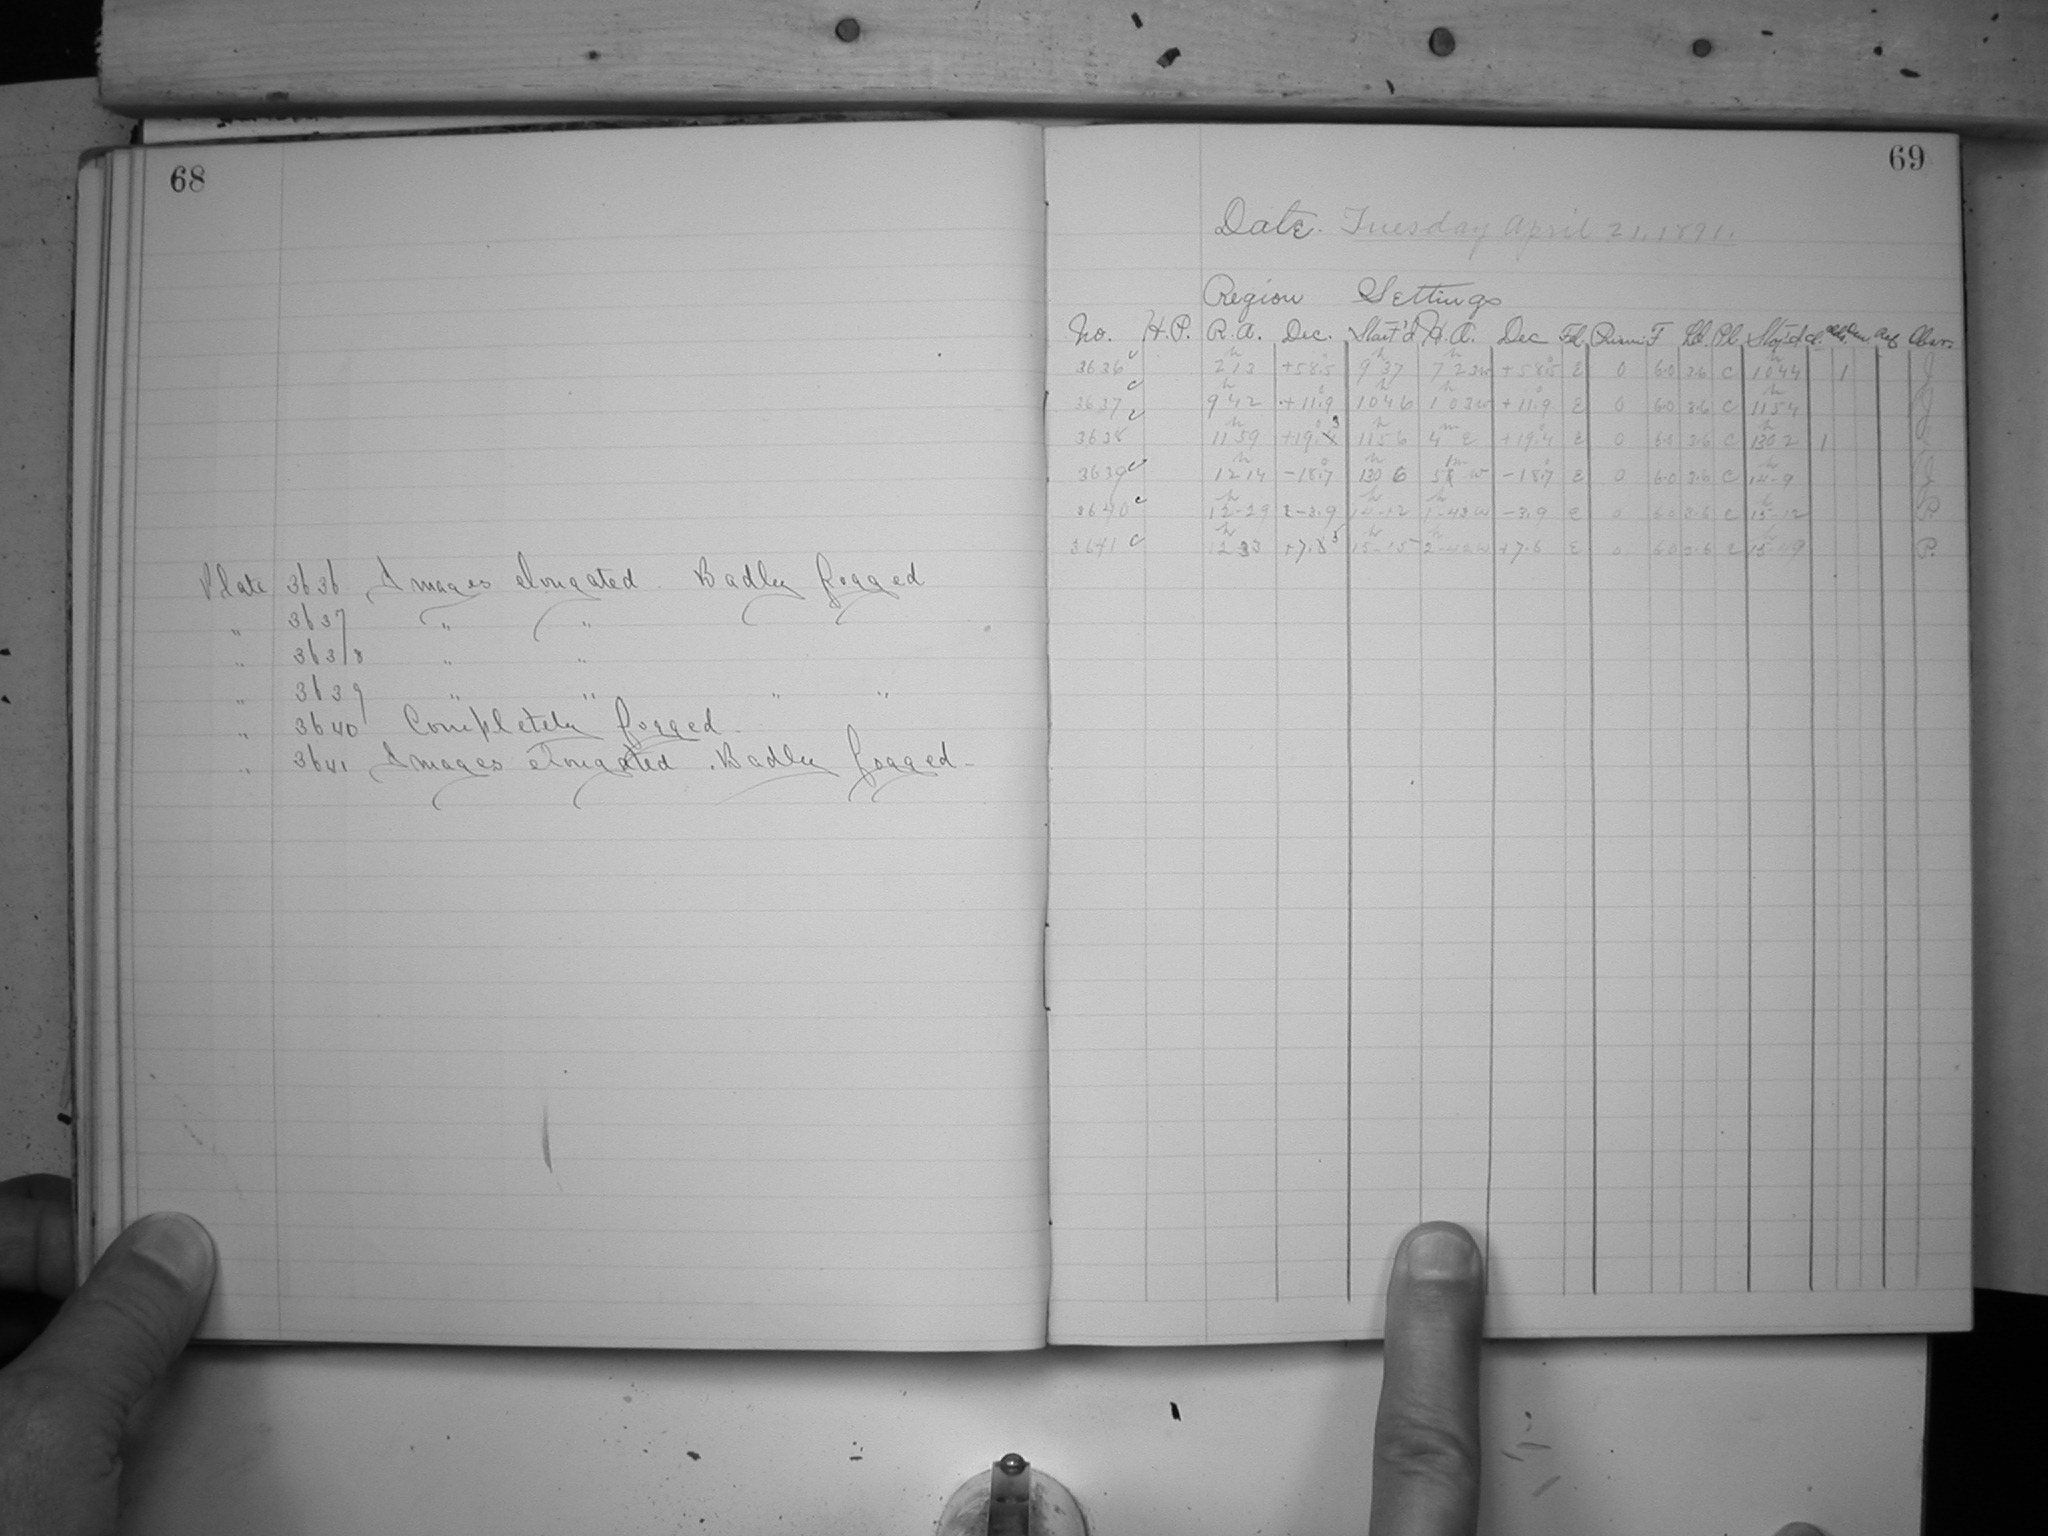 68
Plate 3636 Images elongated. Badly fogged
" 3637 " "
" 3638 " "
" 3639 " " " "
" 3640 Completely fogged.
" 3641 Images elongated. Badly fogged
69
Date. Tuesday April 21, 1891.
Region Settings
No. H.P. R.A. Dec. Start'd H.A. Dec Fd. F Pl Stop'd Obsr.
3636 c 2h 13 +58°.5 9h 37 7h 23w +58°.5 E 0 60 3.6 C 10h 44 1 J
3637 c 9h 42 +11°.9 10h 46 1h 03w +11°.9 E 0 60 3.6 C 11h 54 J
3638 c 11h 59 11h 56 4m E +19°.4 E 0 60 3.6 C 13h 02 1 J
3639 c 12h 14 -18°.7 13h 06 w -18°.7 E 0 60 3.6 C 14h-9 J
3640 c 12h-29 -3.9 14h-12 1h-43w -3.9 E 0 60 3.6 C 15h-12 P.
3641 c 12h 33 15h-15 2h-42w +7.6 E 0 60 3.6 C P.